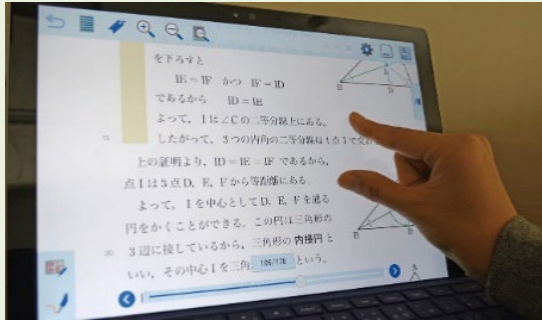 を下ろすと
IE=IF かつ IF=ID
であるから ID=IE
よって，Iは∠Cの二等分線上にある。
したがって，3つの内角の二等分線は1点Iで交わ
上の証明より，ID=IE=IF であるから，
点Iは3点D，E，Fから等距離にある。
よって，Iを中心としてD，E，Fを通る
円をかくことができる。この円は三角形の
20
3辺に接しているから，三角形の 内接円 と
いい，その中心Iを三角
という。
B
D
B